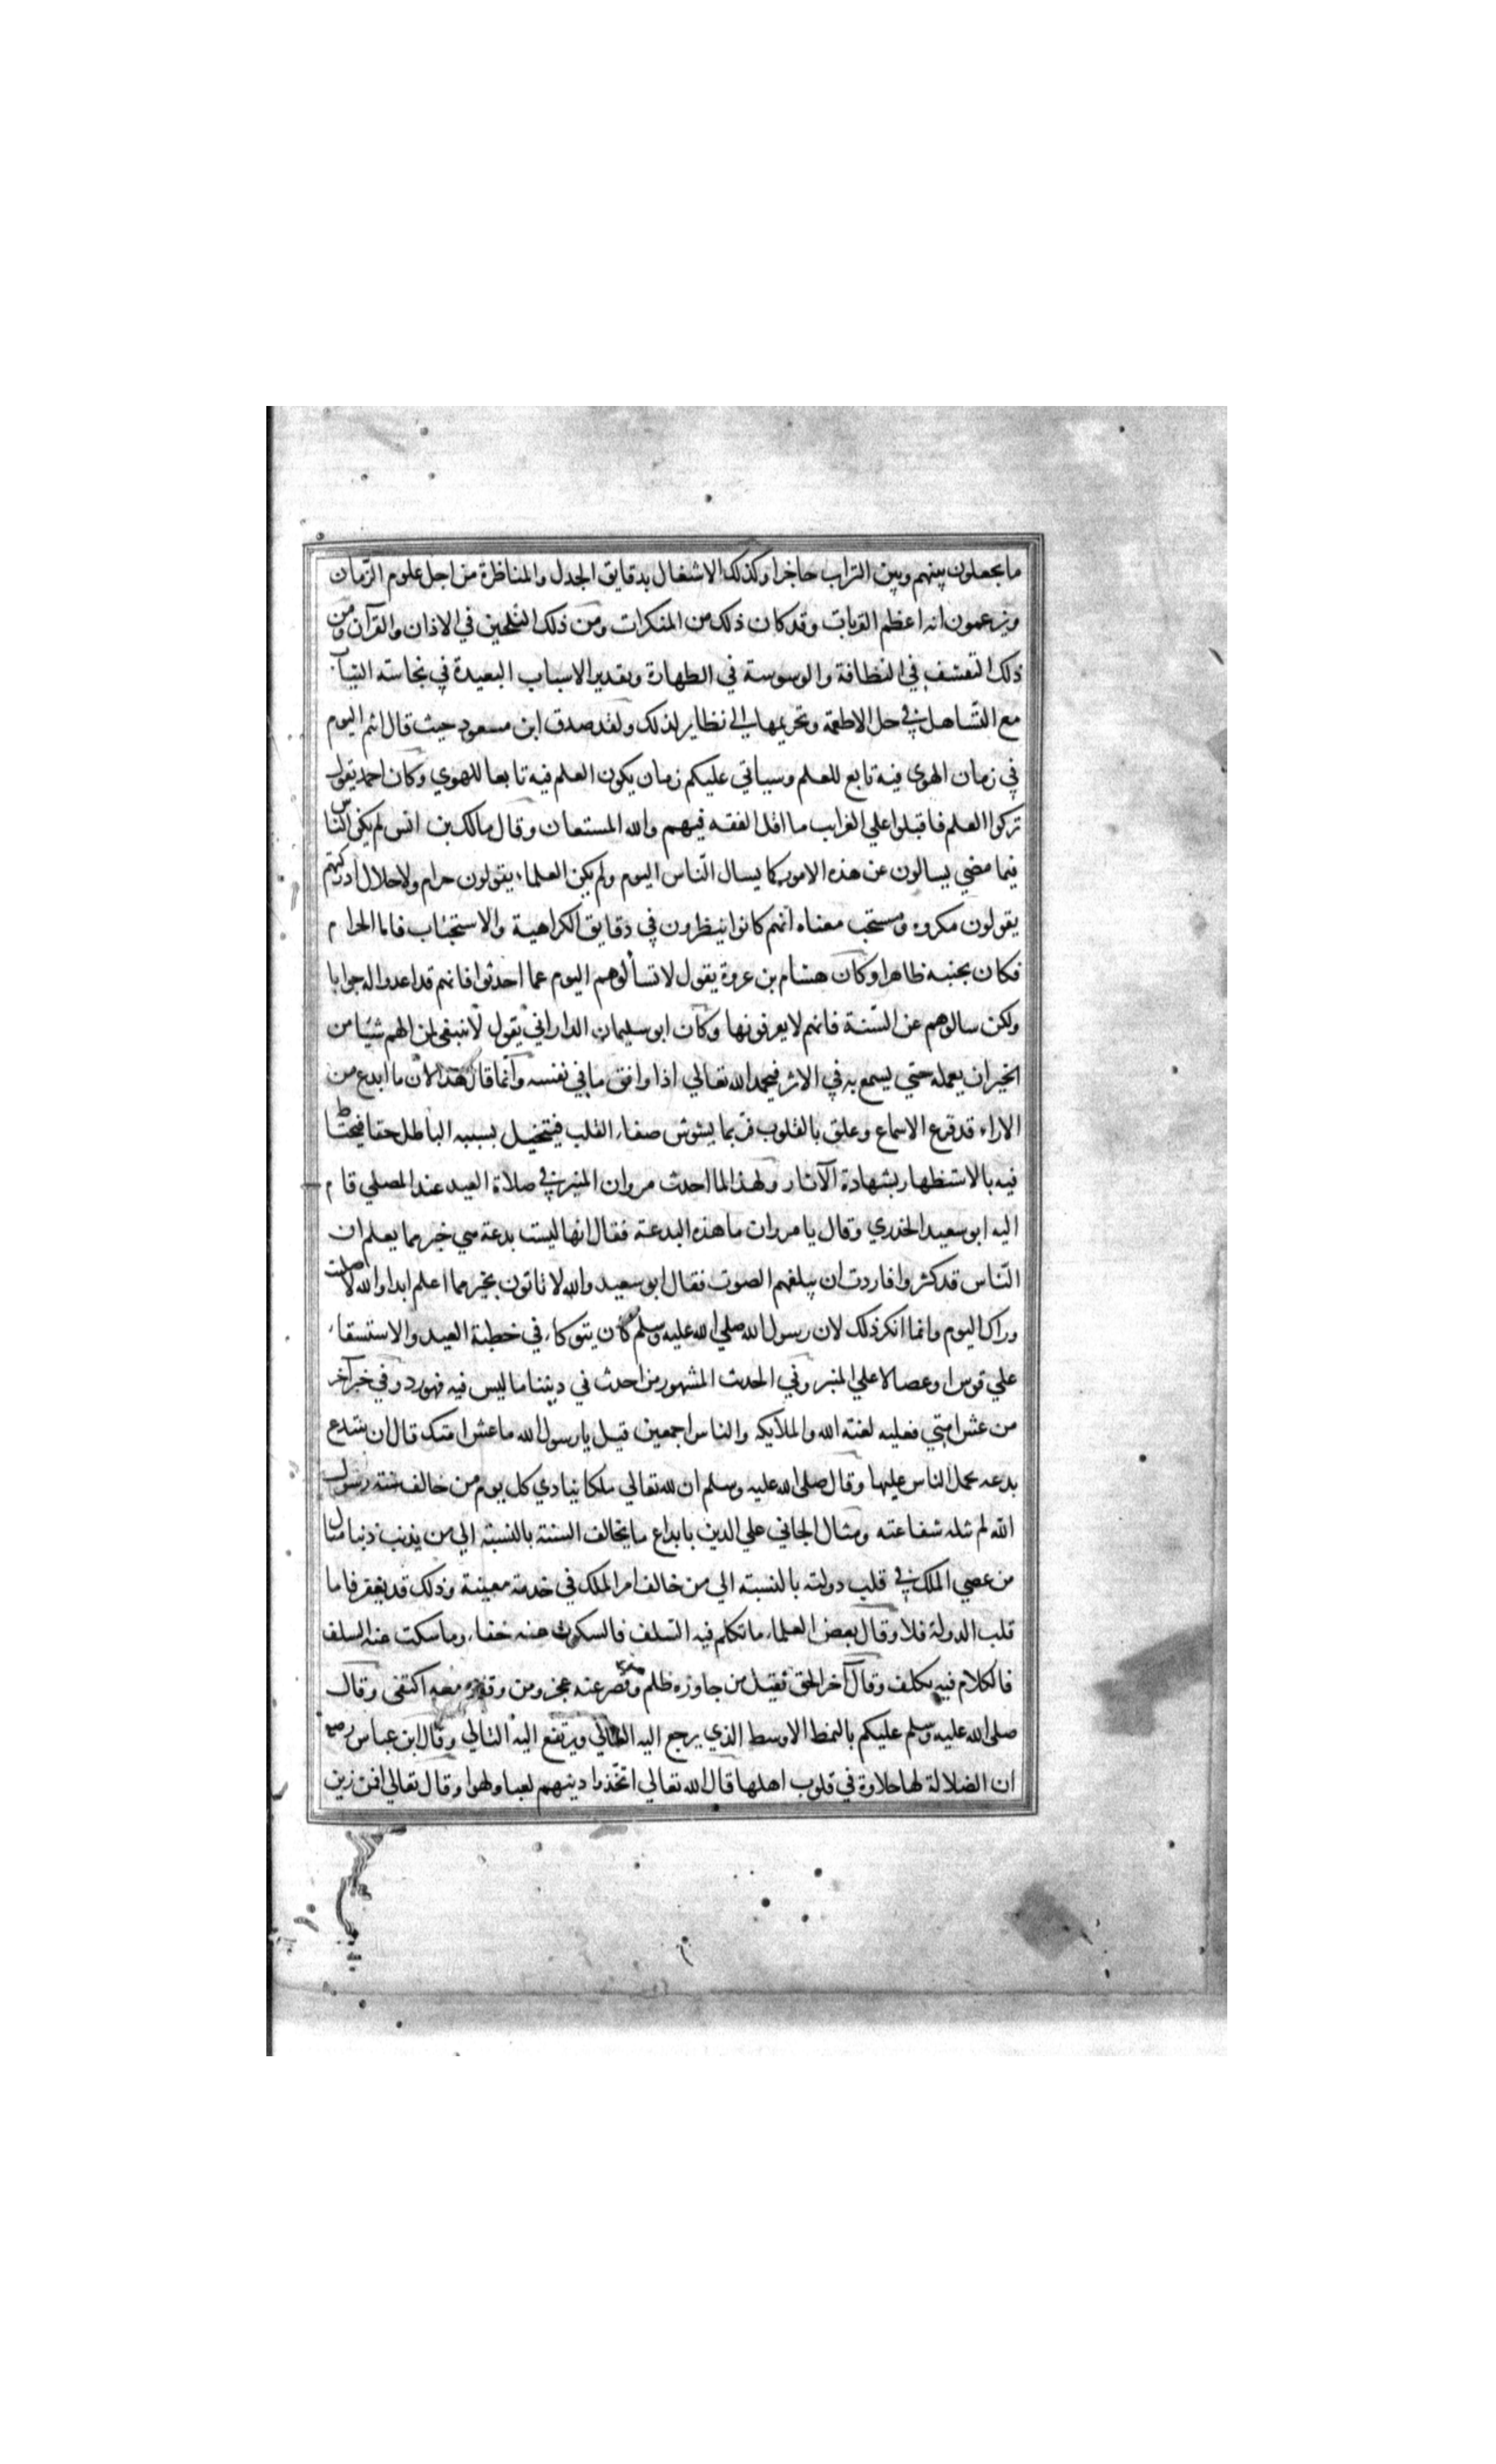 ما يجعلون بينهم وبين التراب حاجزا وكذلك الاشتغال بدقايق الجدل والمناظرة من اجل علوم الزمان
ويزعمون انه اعظم القربات وقد كان ذلك من المنكرات ومن ذلك التلحين في الاذان والقرآن ومن
ذلك التعسف في النظافة والوسوسة في الطهارة وتقدير الاسباب البعيدة في نجاسة الثياب
مع التساهل في حل الاطعمة وتحريمها الي نظاير لذلك ولقد صدق ابن مسعود حيث قال انتم اليوم
في زمان الهوي فيه تابع للعلم وسياتي عليكم زمان يكون العلم فيه تابعا للهوي وكان احمد يقول
تركوا العلم فاقبلوا علي الغرايب ما اقل الفقه فيهم والله المستعان وقال مالك بن انس لم يكن الناس
فيما مضي يسالون عن هذه الامور كما يسال الناس اليوم ولم يكن العلماء يقولون حرام ولا حلال ادركتهم
يقولون مكروه ومستحب معناه انهم كانوا ينظرون في دقايق الكراهية والاستحباب فاما الحرام
فكان تجنبه ظاهرا وكان هشام بن عروة يقول لا تسألوهم اليوم عما احدثوا فانهم قد اعدوا له جوابا
ولكن سالوهم عن السنة فانهم لا يعرفونها وكان ابو سليمان الداراني يقول لا ينبغي لمن الهم شيئا من
الخير ان يعمله حتي يسمع به في الاثر فيحمد الله تعالي اذا وافق ما في نفسه وانما قال هذا لان ما ابدع من
الاراء قد قرع الاسماع وعلق بالقلوب فربما يشوش صفاء القلب فيتخيل بسببه الباطل حقا فيحتاط
فيه بالاستظهار بشهادة الآثار ولهذا لما احدث مروان المنبر في صلاة العيد عند المصلي قام
اليه ابو سعيد الخدري وقال يا مروان ما هذه البدعة فقال انها ليست بدعة هي خير مما يعلم ان
الناس قد كثروا فاردت ان يبلغهم الصوت فقال ابو سعيد والله لا تاتون بخير مما اعلم ابدا والله لا اصليت
وراك اليوم وانما انكر ذلك لان رسول الله صلي الله عليه وسلم كان يتوكاء في خطبة العيد والاستسقاء
علي قوس او عصا لا علي المنبر وفي الحدث المشهور من احدث في ديننا ما ليس فيه فهو رد وفي خبر آخر
من غش امتي فعليه لعنة الله والملايكه والناس اجمعين قيل يا رسول الله ما غش امتك قال ان يبتدع
بدعه يحمل الناس عليها وقال صلي الله عليه وسلم ان لله تعالي ملكا ينادي كل يوم من خالف سنة رسول
الله لم تنله شفاعته ومثال الجاني علي الدين بابداع ما يخالف السنة بالنسبة الي من يذنب ذنبا مثال
من عصي الملك في قلب دولته بالنسبة الي من خالف امر الملك في خدمة معينة وذلك قد يغفر فاما
قلب الدولة فلا وقال بعض العلماء ما تكلم فيه السلف فالسكوت عنه خفاء وما سكت عنه السلف
فالكلام فيه تكلف وقال آخر الحق ثقيل من جاوزه ظلم ومن قصر عنه عجز ومن وقف معه اكتفي وقال
صلي الله عليه وسلم عليكم بالنمط الاوسط الذي يرجع اليه العالي ويرتفع اليه التالي وقال ابن عباس رضه
ان الضلالة لها حلاوة في قلوب اهلها قال الله تعالي اتخذوا دينهم لعبا ولهوا وقال تعالي افمن زين